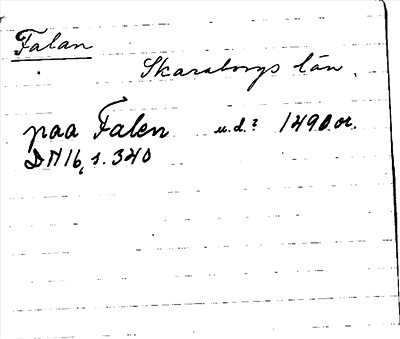 Falan
Skaraborgs län.
paa Falen u.d.? 1490 or.
DN 16, s. 340